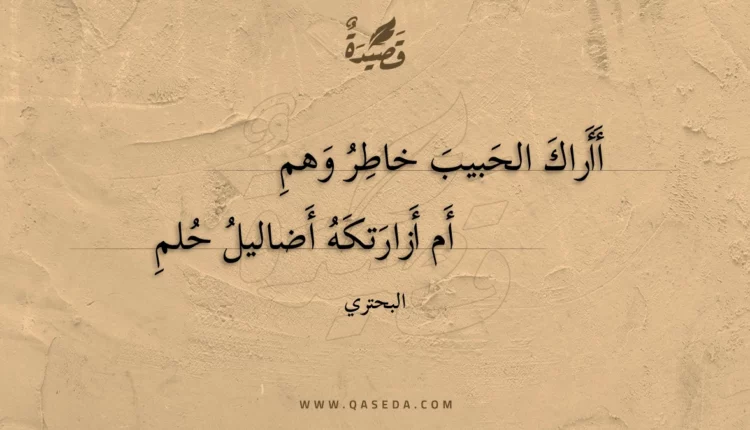 قَصِيْدَةٌ
أَأَراكَ الحَبيبَ خاطِرُ وَهمِ
أَم أَزارَتكَهُ أَضاليلُ حُلمِ
البحتري
WWW.QASEDA.COM